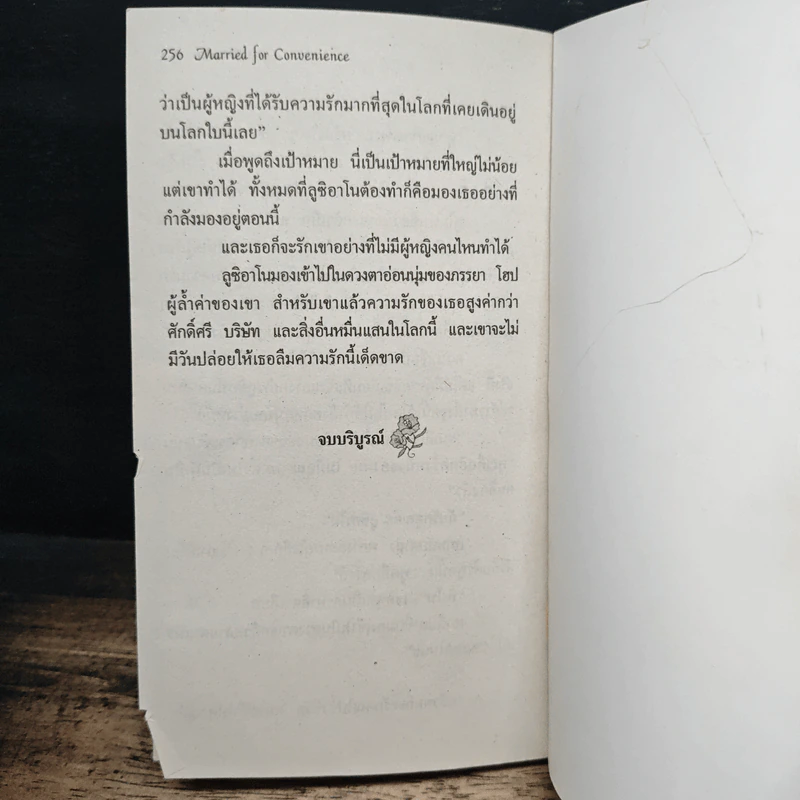 256 Married for Convenience
ว่าเป็นผู้หญิงที่ได้รับความรักมากที่สุดในโลกที่เคยเดินอยู่
บนโลกใบนี้เลย”
เมื่อพูดถึงเป้าหมาย นี่เป็นเป้าหมายที่ใหญ่ไม่น้อย
แต่เขาทำได้ ทั้งหมดที่ลูซิอาโนต้องทำก็คือมองเธออย่างที่
กำลังมองอยู่ตอนนี้
และเธอก็จะรักเขาอย่างที่ไม่มีผู้หญิงคนไหนทำได้
ลูซิอาโนมองเข้าไปในดวงตาอ่อนนุ่มของภรรยา โฮป
ผู้ล้ำค่าของเขา สำหรับเขาแล้วความรักของเธอสูงค่ากว่า
ศักดิ์ศรี บริษัท และสิ่งอื่นหมื่นแสนในโลกนี้ และเขาจะไม่
มีวันปล่อยให้เธอลืมความรักนี้เด็ดขาด
จบบริบูรณ์